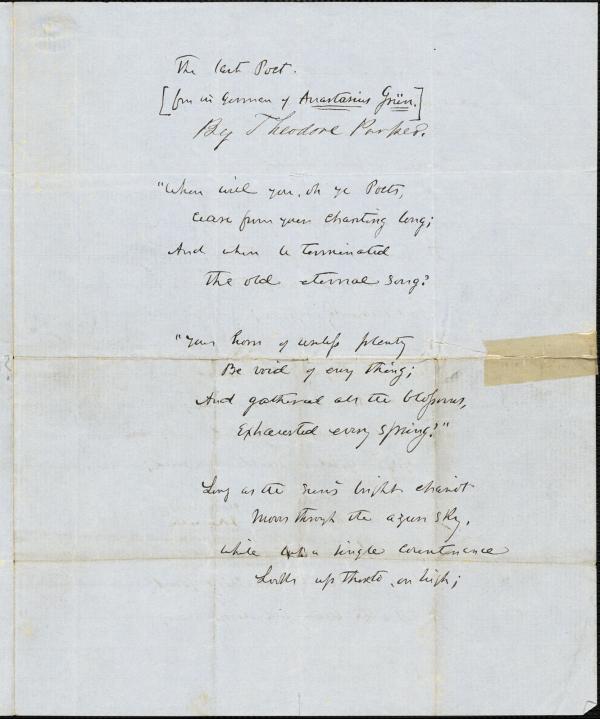 The last Poet.
[from the German of Anastasius Grün.]
By Theodore Parker.
"When will you, oh ye Poets,
cease from your chanting long;
And when be terminated
The old eternal song?
"Your horn of plenty
Be void of every thing;
And gathered all the blossoms,
Exhausted every spring?"
Long as the sun's bright chariot
Moves through the azure sky,
While a single countenance
Looks up thereto, on high;